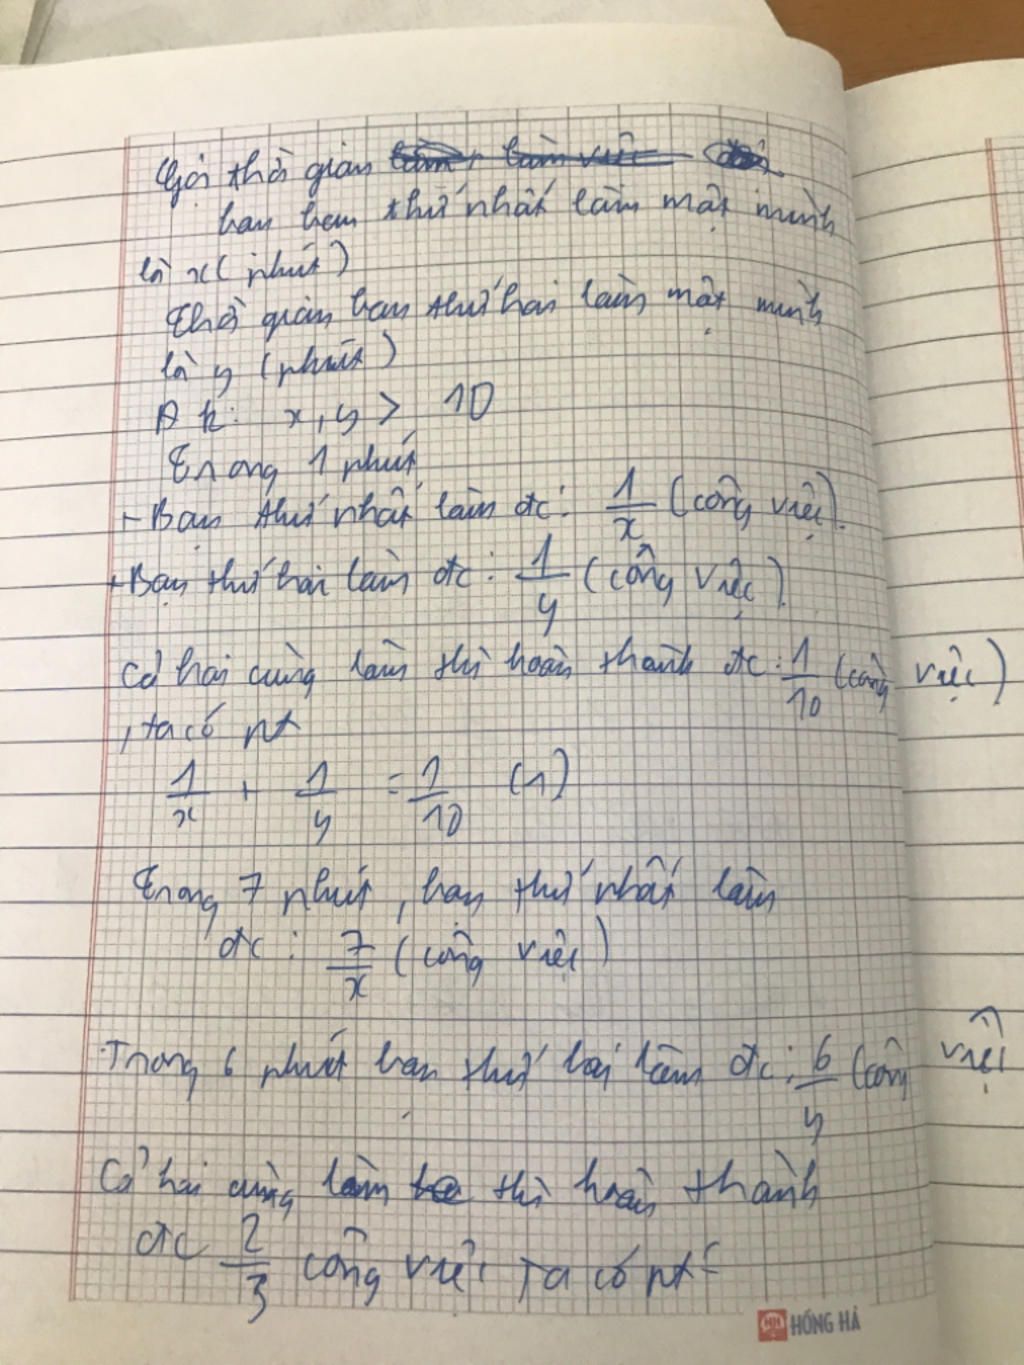 Gọi thời gian
bạn bạn thứ nhất làm một mình
là x (phút)
Thời gian bạn thứ hai làm một mình
là y (phút)
Đk: x, y > 10
Trong 1 phút
+ Bạn thứ nhất làm đc: 1/x (công việc).
+ Bạn thứ hai làm đc: 1/y (công việc).
Cả hai cùng làm thì hoàn thành đc: 1/10 (công việc)
, ta có pt
1/x + 1/y = 1/10 (1)
Trong 7 phút, bạn thứ nhất làm
đc: 7/x (công việc)
Trong 6 phút bạn thứ hai làm đc: 6/y (công việc
Cả hai cùng làm thì hoàn thành
đc 2/3 công việc Ta có pt:
HỒNG HÀ